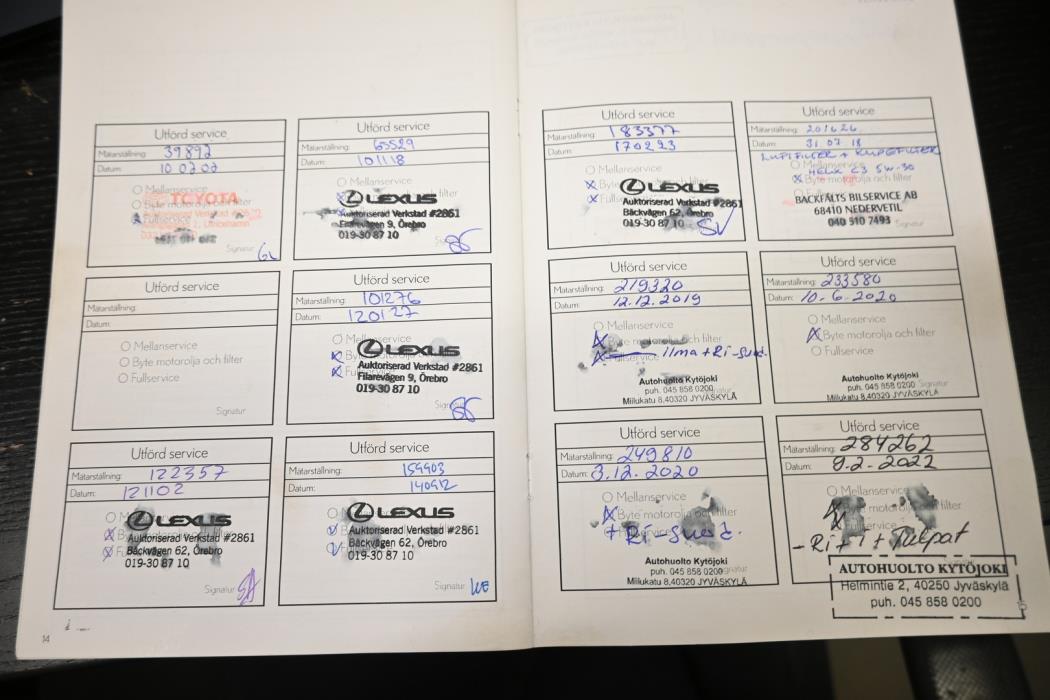 Utförd service
Mätarställning: 39892
Datum: 10 02 02
Mellanservice
Byte motorolja och filter
Fullservice
TOYOTA
Signatur
Utförd service
Mätarställning: 65529
Datum: 101118
Mellanservice
filter
LEXUS
Auktoriserad Verkstad #2861
Filarevägen 9, Örebro
019-30 87 10
Utförd service
Mätarställning:
Datum:
Mellanservice
Byte motorolja och filter
Fullservice
Signatur
Utförd service
Mätarställning: 101276
Datum: 120127
LEXUS
Auktoriserad Verkstad #2861
Filarevägen 9, Örebro
019-30 87 10
Utförd service
Mätarställning: 122357
Datum: 121102
LEXUS
Auktoriserad Verkstad #2861
Bäckvägen 62, Örebro
019-30 87 10
Signatur
Utförd service
Mätarställning: 159903
Datum: 140912
LEXUS
Auktoriserad Verkstad #2861
Bäckvägen 62, Örebro
019-30 87 10
Signatur WE
14
Utförd service
Mätarställning: 183377
Datum: 170223
Mellanservice
LEXUS
Auktoriserad Verkstad #2861
Bäckvägen 62, Örebro
019-30 87 10
Utförd service
Mätarställning: 201626
Datum: 31 07 18
LUFTFILTER + KUPEFILTER
HELIX C3 5W-30
Byte motorolja och filter
BACKFÄLTS BILSERVICE AB
68410 NEDERVETIL
040 910 7493
Signatur
Utförd service
Mätarställning: 219320
Datum: 12.12.2019
Mellanservice
Ilma + Ri-Suod.
Autohuolto Kytöjoki
puh. 045 858 0200
Miilukatu 8,40320 JYVÄSKYLÄ
Utförd service
Mätarställning: 233580
Datum: 10.6.2020
Mellanservice
Byte motorolja och filter
Fullservice
Autohuolto Kytöjoki
puh. 045 858 0200
Signatur
Miilukatu 8,40320 JYVÄSKYLÄ
Utförd service
Mätarställning: 249810
Datum: 3.12.2020
Mellanservice
Byte motorolja och filter
+ Ri-Suod.
Autohuolto Kytöjoki
puh. 045 858 0200
Signatur
Miilukatu 8,40320 JYVÄSKYLÄ
Utförd service
Mätarställning: 284262
Datum: 9.2.2022
Mellanservice
Byte motorolja och filter
Fullservice
AUTOHUOLTO KYTÖJOKI
Helmintie 2, 40250 Jyväskylä
puh. 045 858 0200